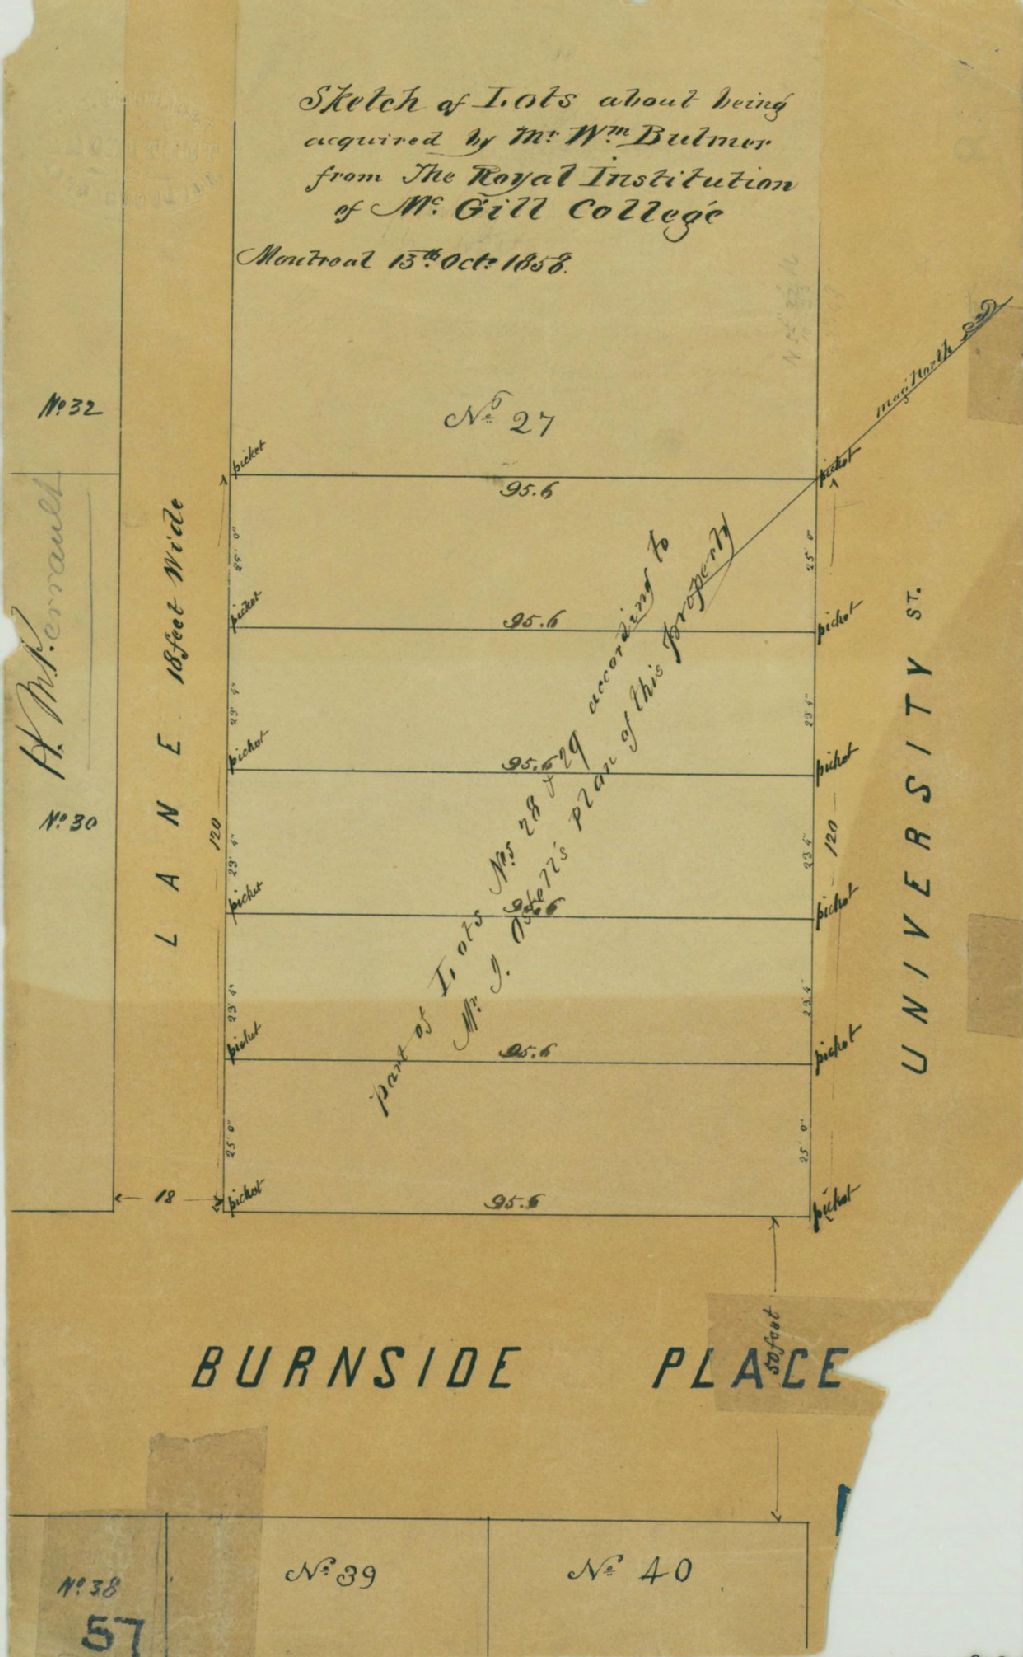 Sketch of Lots about being
acquired by Mr. Wm. Bulmer
from The Royal Institution
of Mc. Gill College
Montreal 13th. Oct. 1858.
Mag. North
No. 32
No. 27
picket
picket
95.6
25' 0"
25' 0"
LANE 18 feet Wide
H. M. Perrault
picket
picket
95.6
UNIVERSITY ST.
23' 4"
23' 4"
picket
picket
95.6
No. 30
120
120
23' 4"
23' 4"
picket
picket
95.6
part of Lots Nos 28 & 29 according to
Mr. J. Ostell's plan of this property
23' 4"
23' 4"
picket
picket
95.6
25' 0"
25' 0"
18
picket
picket
95.6
50 feet
BURNSIDE PLACE
No. 38
No. 39
No. 40
57